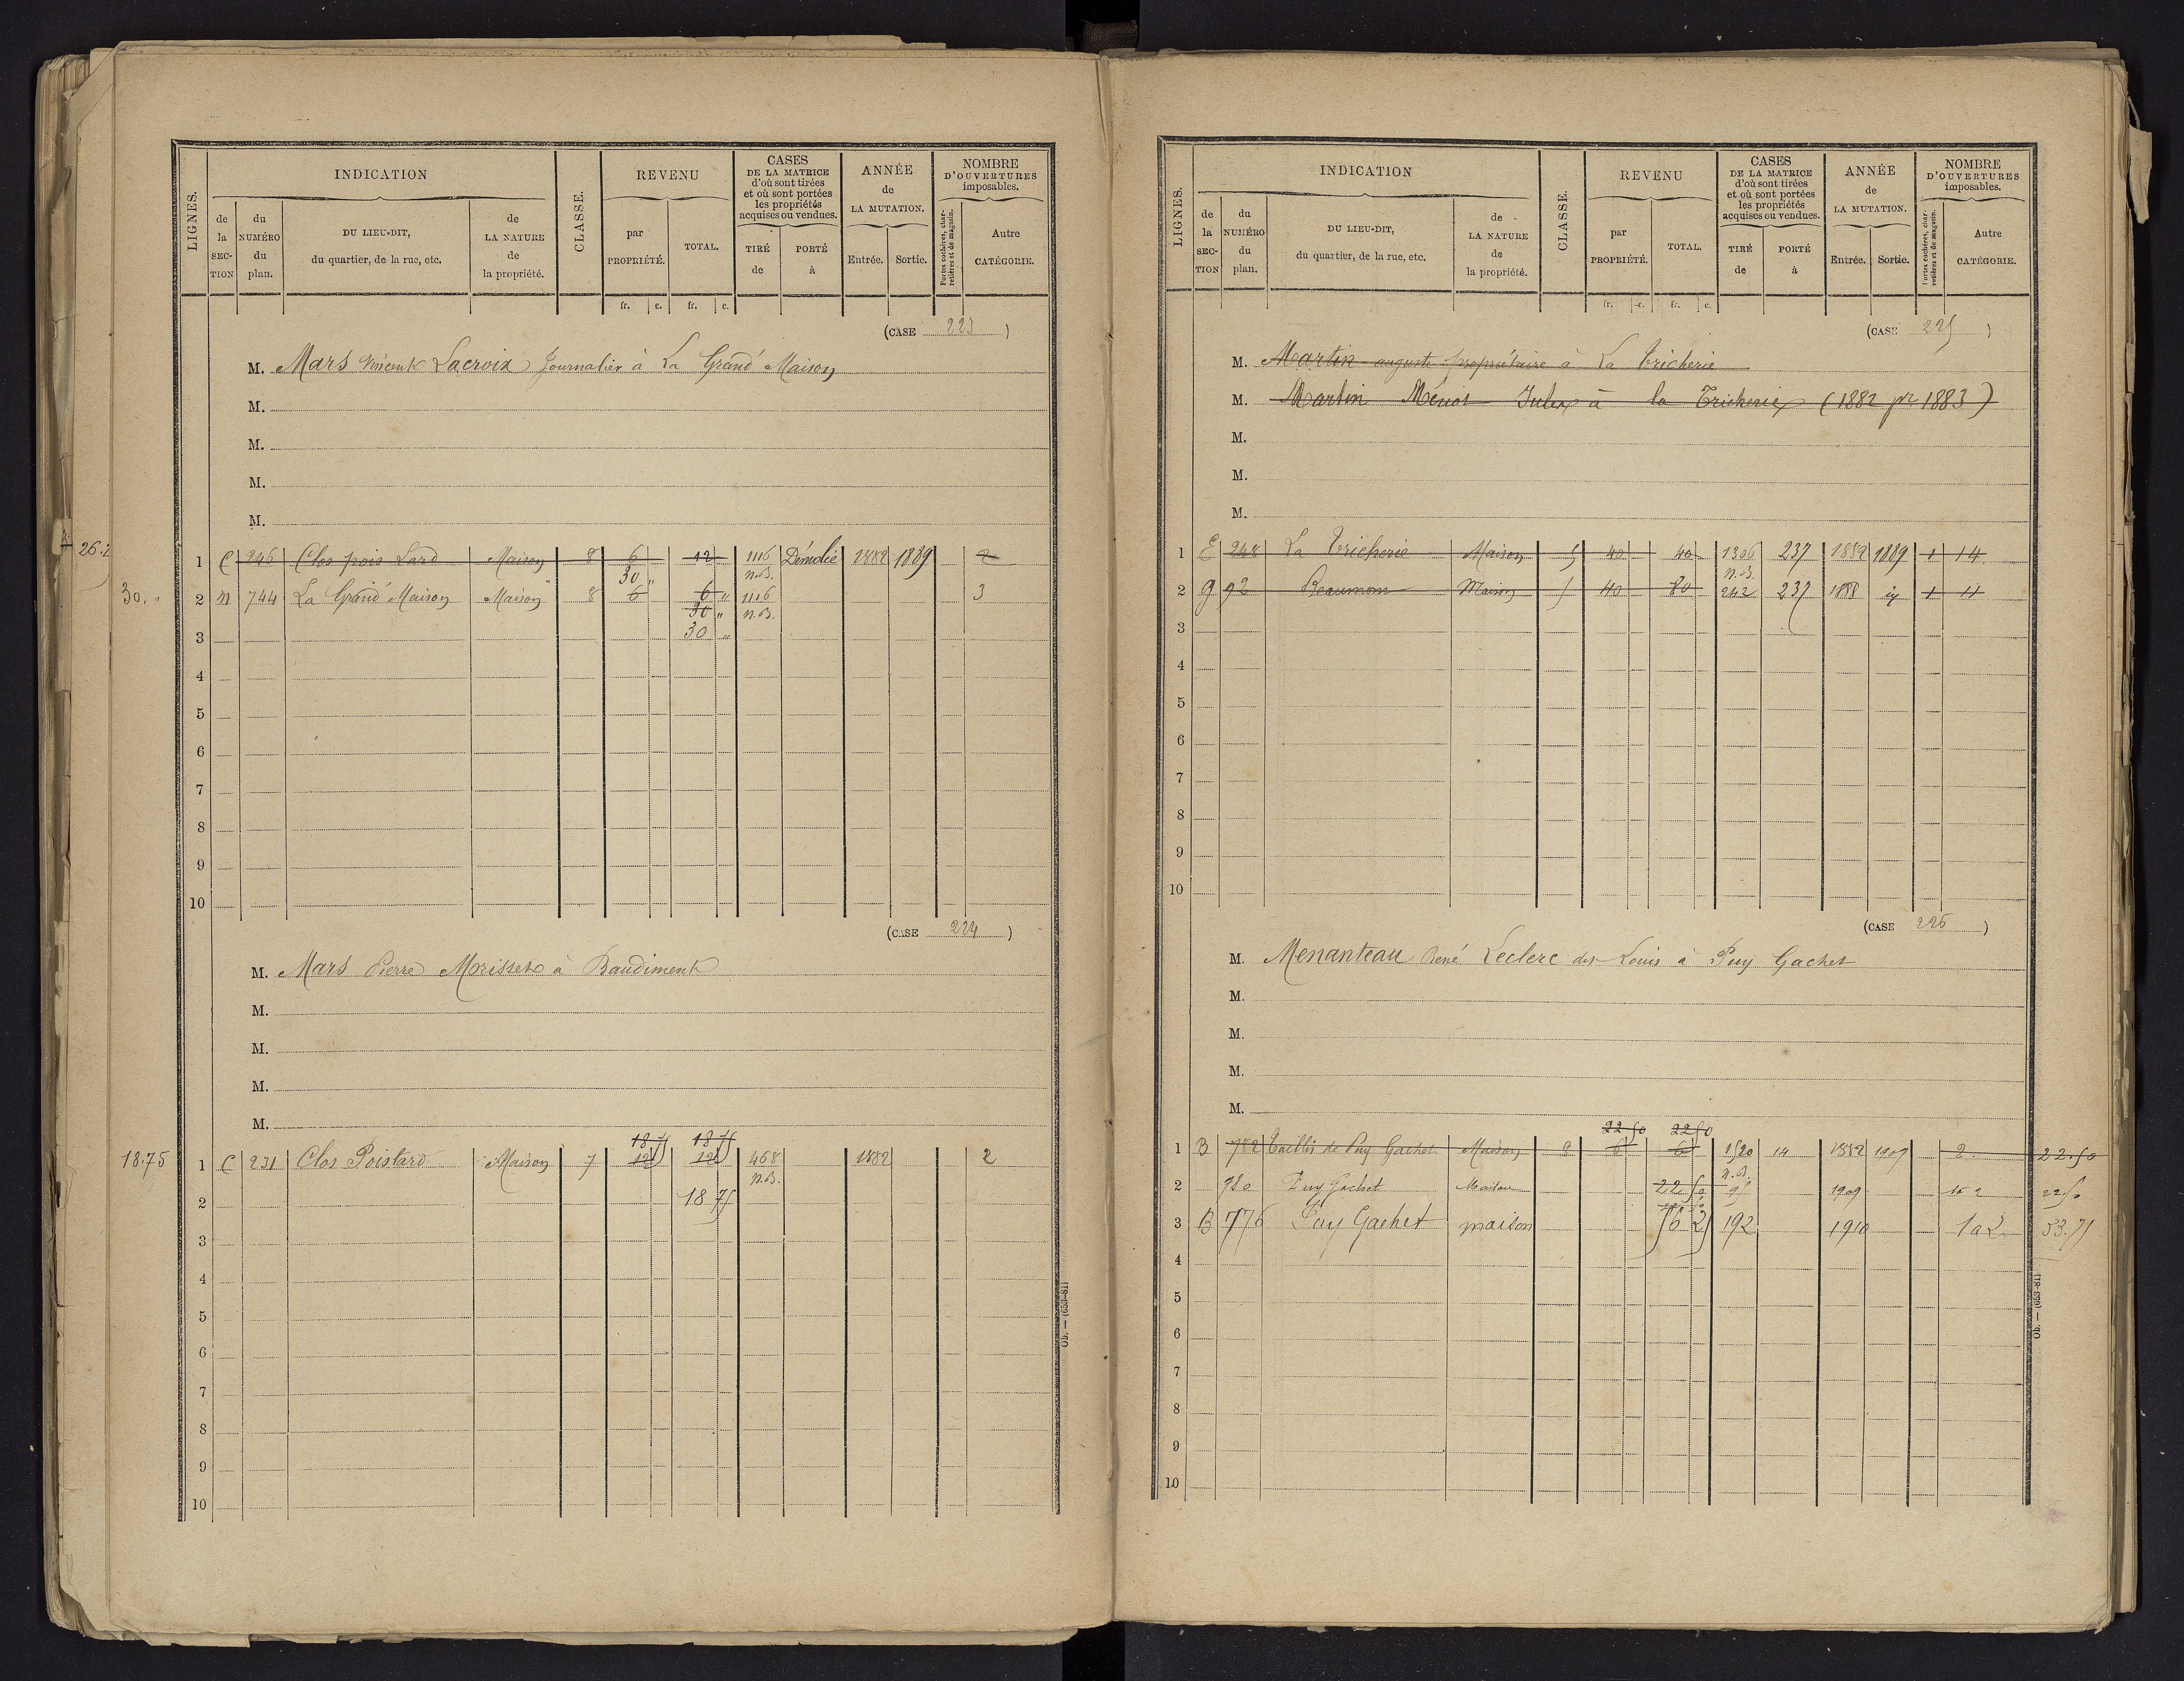 LIGNES. INDICATION CLASSE. REVENU CASES DE LA MATRICE d'où sont tirées et où sont portées les propriétés acquises ou vendues. ANNÉE de LA MUTATION. NOMBRE D'OUVERTURES imposables.
de la SEC-TION du NUMÉRO du plan. DU LIEU-DIT, du quartier, de la rue, etc. de LA NATURE de la propriété. par PROPRIÉTÉ. TOTAL. TIRÉ de PORTÉ à Entrée. Sortie. Portes cochères, charretières et de magasin. Autre CATÉGORIE.
fr. c. fr. c.
(CASE 223)
M. Mars Vincent Lacroix Journalier à La Grand' Maison
M.
M.
M.
M.
26.2
1 C 246 Clos pois Lard Maison 8 6 12 1116 Démolie 1882 1889 2
30 " n.B.
30. " 2 m 744 La Grand' Maison Maison 8 6 6 " 1116 3
30 " n.B.
3 30 "
4
5
6
7
8
9
10
(CASE 224)
M. Mars Pierre Morisset à Baudiment
M.
M.
M.
M.
18 75 18 75
18.75 1 C 231 Clos Poislard Maison 7 12 12 468 1882 2
n.B.
2 18 75
3
4
5
6
7
8
9
10
Ob. — (653-81)
LIGNES. INDICATION CLASSE. REVENU CASES DE LA MATRICE d'où sont tirées et où sont portées les propriétés acquises ou vendues. ANNÉE de LA MUTATION. NOMBRE D'OUVERTURES imposables.
de la SEC-TION du NUMÉRO du plan. DU LIEU-DIT, du quartier, de la rue, etc. de LA NATURE de la propriété. par PROPRIÉTÉ. TOTAL. TIRÉ de PORTÉ à Entrée. Sortie. Portes cochères, charretières et de magasin. Autre CATÉGORIE.
fr. c. fr. c.
(CASE 225)
M. Martin auguste propriétaire à La Tricherie
M. Martin Jules à la Tricherie (1882 pr 1883)
M.
M.
M.
1 E 248 La Tricherie Maison 5 40 40 1306 237 1882 1889 1 14
n.B.
2 g 92 Beaumont Maison 5 40 80 242 237 1888 1 11
3
4
5
6
7
8
9
10
(CASE 226)
M. Menanteau René Leclerc des Louis à Puy Gachet
M.
M.
M.
M.
22 50 22 50
1 B 782 Taillis de Puy Gachet Maison 8 6 6 1520 14 1882 1909 2 22.50
n.B.
2 780 Puy Gachet Maison 22 50 1909 2 22 50
3 B 776 Puy Gachet maison 56 25 192 1910 1 a 2 53.75
4
5
6
7
8
9
10
Ob. — (653-81)